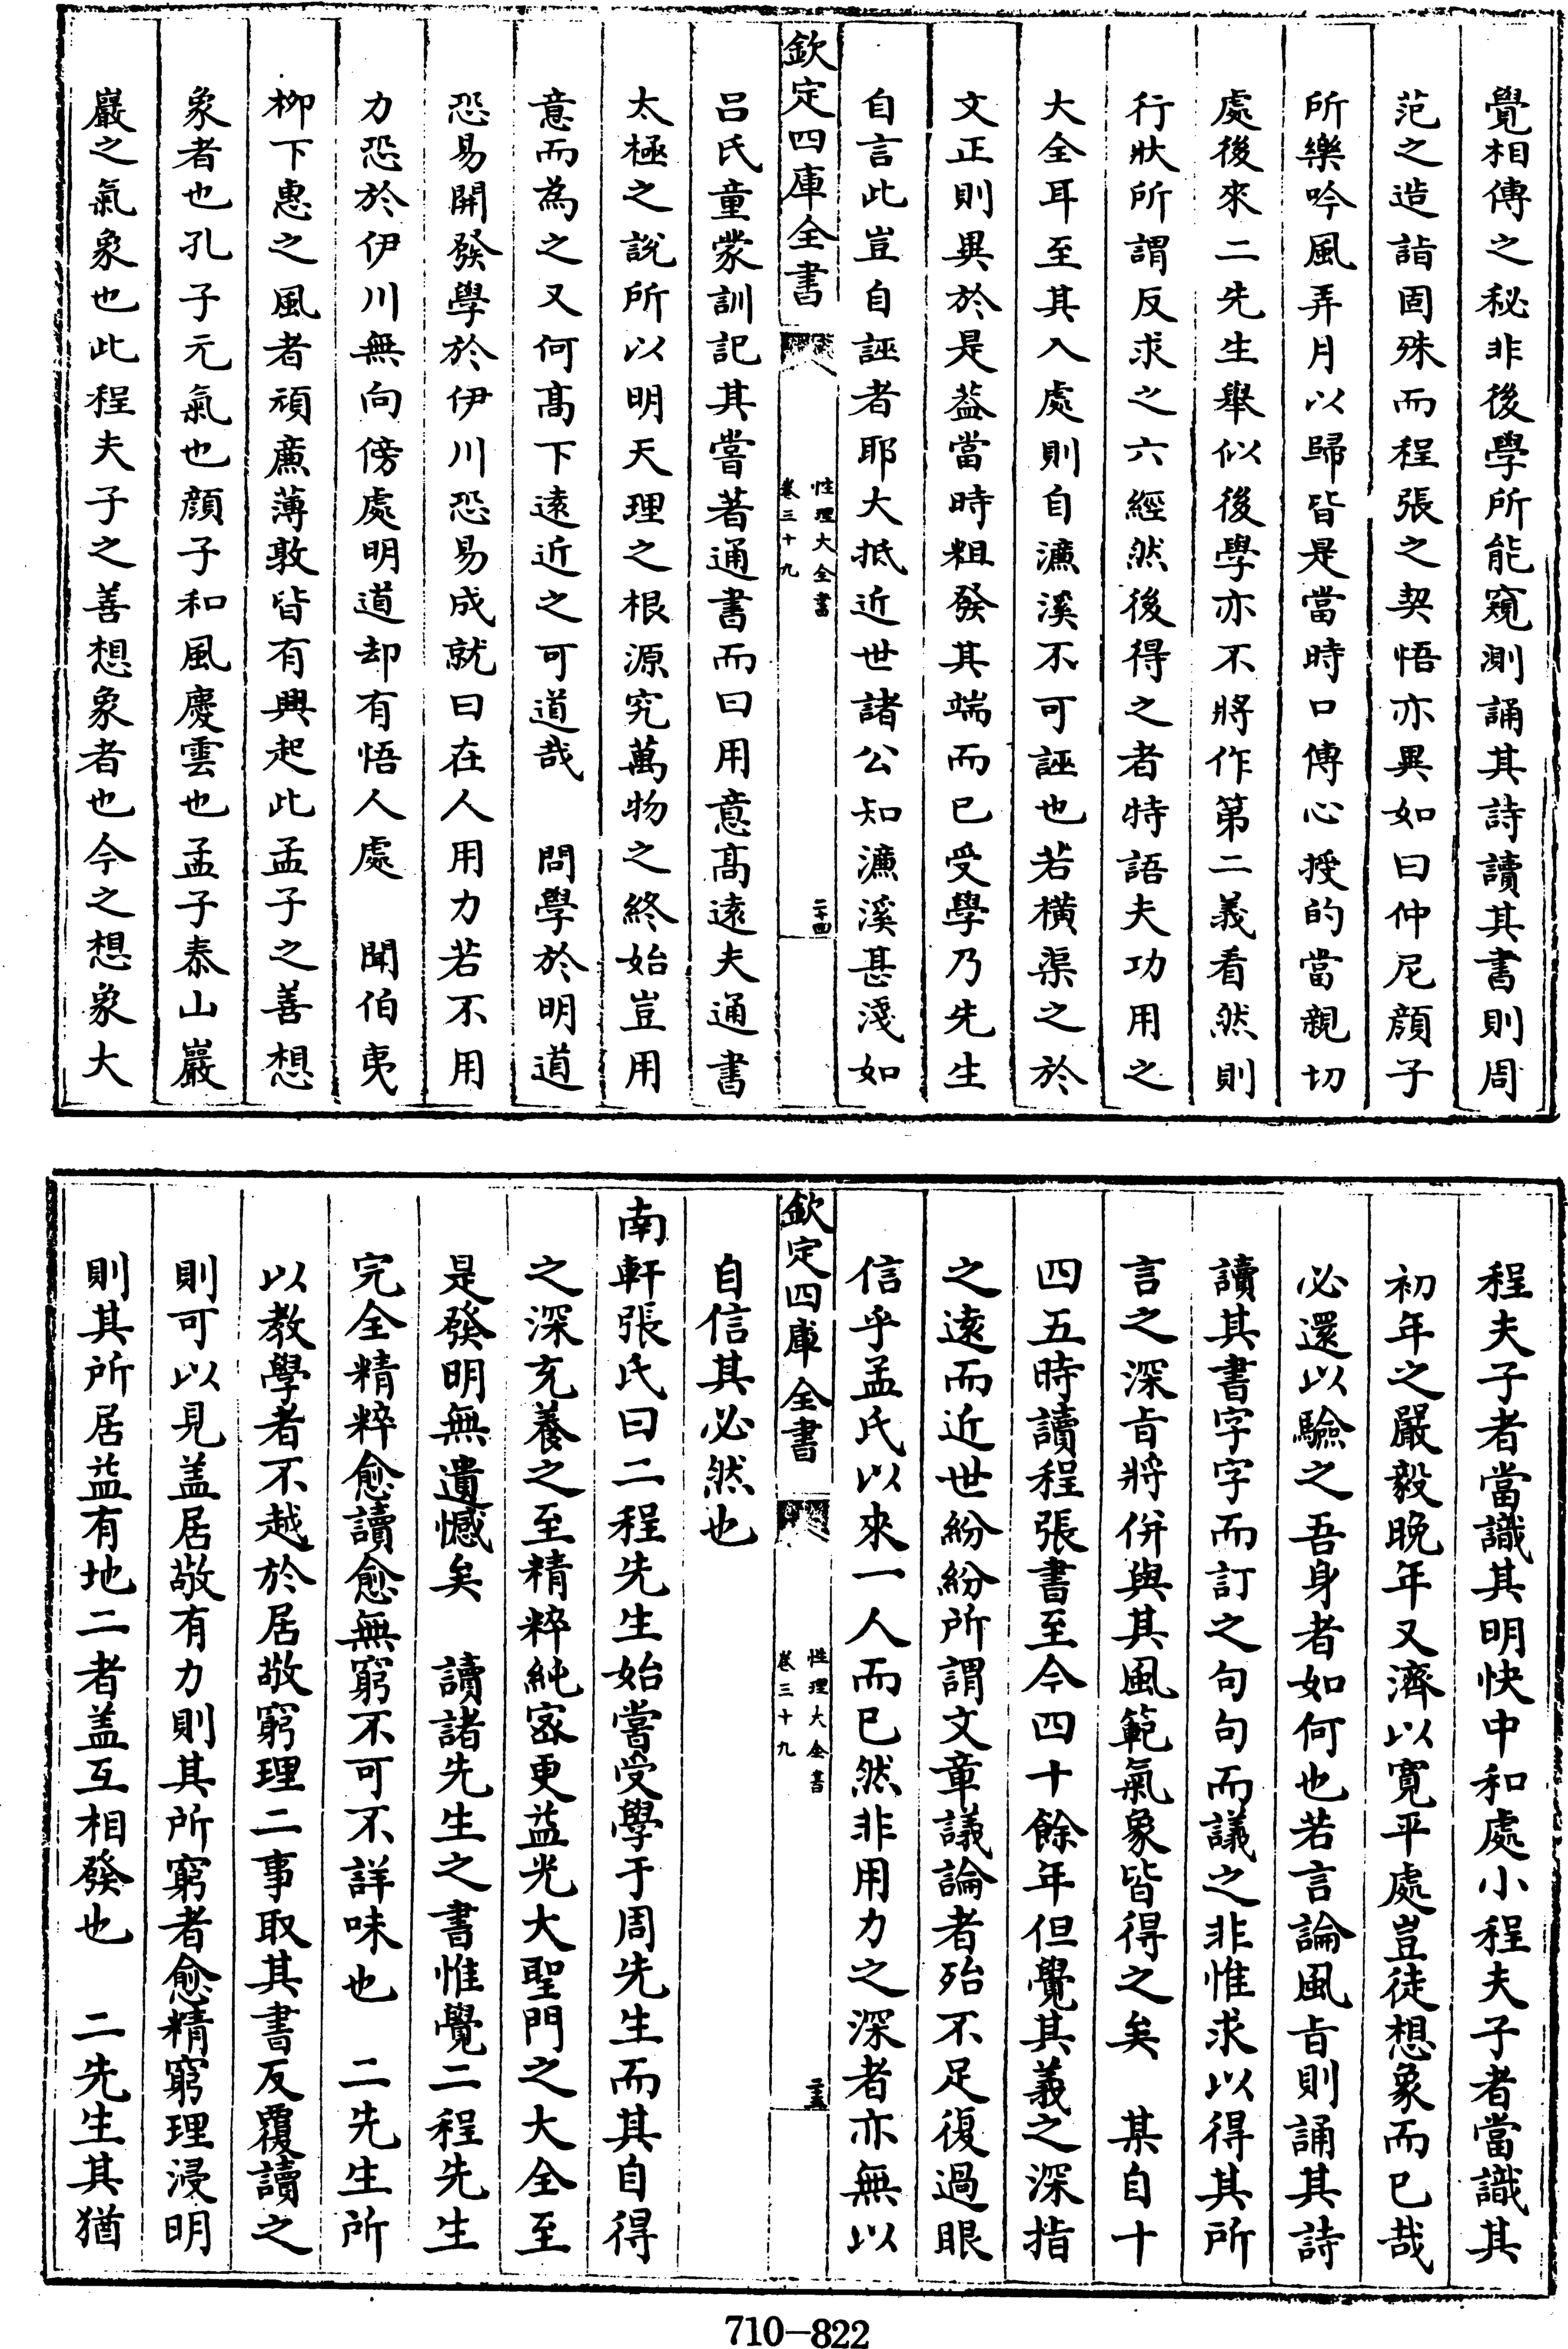 覺相傳之秘非後學所能窺測誦其詩讀其書則周
范之造詣固殊而程張之契悟亦異如曰仲尼顔子
所樂吟風弄月以歸皆是當時口傳心授的當親切
處後來二先生舉似後學亦不將作第二義看然則
行狀所謂反求之六經然後得之者特語夫功用之
大全耳至其入處則自濓溪不可誣也若橫渠之於
文正則異於是葢當時粗發其端而已受學乃先生
自言此豈自誣者耶大抵近世諸公知濓溪甚淺如
欽定四庫全書
性理大全書
卷三十九
二十四
吕氏童蒙訓記其嘗著通書而曰用意髙逺夫通書
太極之說所以明天理之根源究萬物之終始豈用
意而為之又何髙下逺近之可道哉　問學於明道
恐易開發學於伊川恐易成就曰在人用力若不用
力恐於伊川無向傍處明道却有悟人處　聞伯夷
栁下惠之風者頑廉薄敦皆有興起此孟子之善想
象者也孔子元氣也顔子和風慶雲也孟子泰山巖
巖之氣象也此程夫子之善想象者也今之想象大
程夫子者當識其明快中和處小程夫子者當識其
初年之嚴毅晚年又濟以寛平處豈徒想象而已哉
必還以驗之吾身者如何也若言論風㫖則誦其詩
讀其書字字而訂之句句而議之非惟求以得其所
言之深㫖將併與其風範氣象皆得之矣　某自十
四五時讀程張書至今四十餘年但覺其義之深指
之逺而近世紛紛所謂文章議論者殆不足復過眼
信乎孟氏以來一人而已然非用力之深者亦無以
欽定四庫全書
性理大全書
卷三十九
二十五
自信其必然也
南軒張氏曰二程先生始嘗受學于周先生而其自得
之深充養之至精粹純宻更益光大聖門之大全至
是發明無遺憾矣　讀諸先生之書惟覺二程先生
完全精粹愈讀愈無窮不可不詳味也　二先生所
以教學者不越於居敬窮理二事取其書反覆讀之
則可以見盖居敬有力則其所窮者愈精窮理浸明
則其所居益有地二者盖互相發也　二先生其猶
710-822